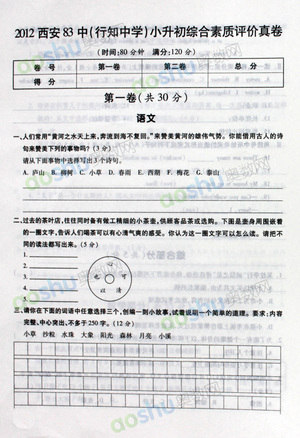 2012 西安 83 中(行知中学)小升初综合素质评价真卷
(时间:80 分钟 满分:120 分)
卷 号 第一卷 第二卷 总 分
得 分
第一卷(共 30 分)
语文
一、人们常用“黄河之水天上来,奔流到海不复回。”来赞美黄河的雄伟气势。你能借用古人的诗
句来赞美下列的事物吗? (3 分)
请从下面事物中选择写出 3 个诗句。
A. 庐山 B. 梅树 C. 小草 D. 春雨 E. 西湖 F. 梅花 G. 泰山
二、过去的茶叶店,往往同时备有做工精细的小茶壶,供顾客品茶或选购。下图是壶身周围嵌着
的一圈文字,告诉人们喝茶可以有心清气爽的感受。你认为这一圈文字可以怎么读。请把不
同的读法都写出来。(5 分)
1.
2.
3.
4.
5.
心
也
可
以
清
三、请你在下面的词语中任意选择三个,创编一则小故事,试着说明一个简单的道理。要求:内容
完整、中心突出,不多于 250 字。(12 分)
小草 沙粒 水珠 大象 阳光 森林 月亮 小溪
aoshu 奥数网